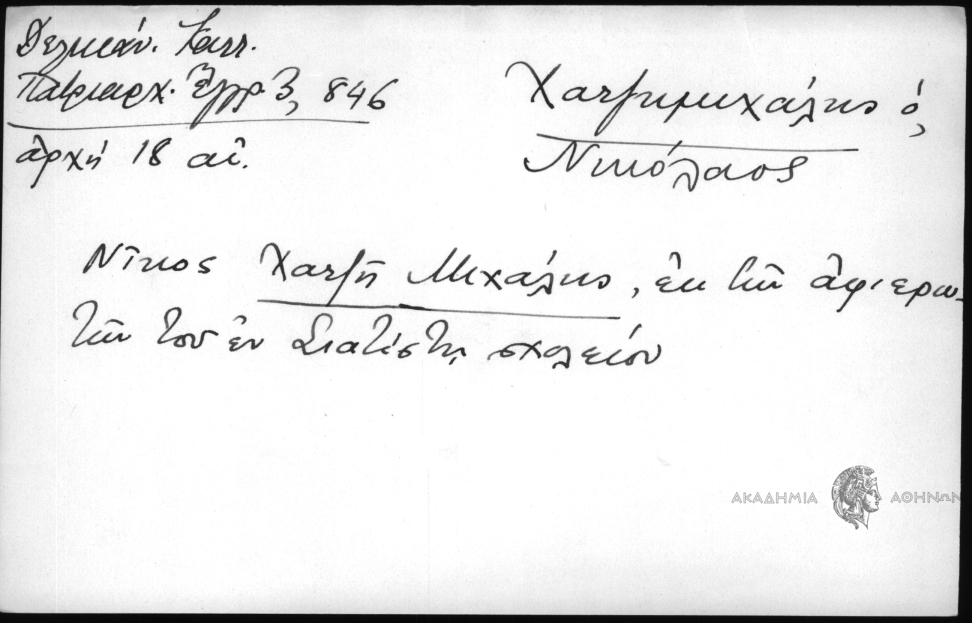 Δελικάν. Καλλ.
Πατριαρχ. Ἔγγρ. 3, 846
ἀρχή 18 αἰ.
Χατζημιχάλης ὁ,
Νικόλαος
Νῖκος Χατζῆ Μιχάλης, ἐκ τῶν ἀφιερω-
τῶν τοῦ ἐν Σιατίστῃ σχολείου
ΑΚΑΔΗΜΙΑ ΑΘΗΝΩΝ